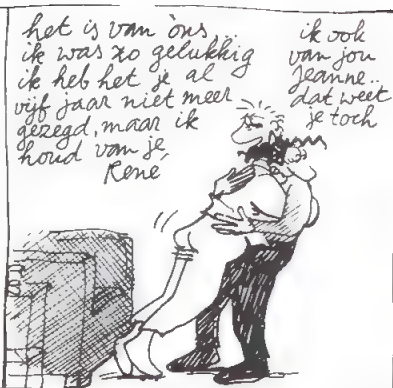 het is van òns..
ik was zo gelukkig
ik heb het je al
vijf jaar niet meer
gezegd, maar ik
houd van je
René
ik ook
van jou
Jeanne..
dat weet
je toch